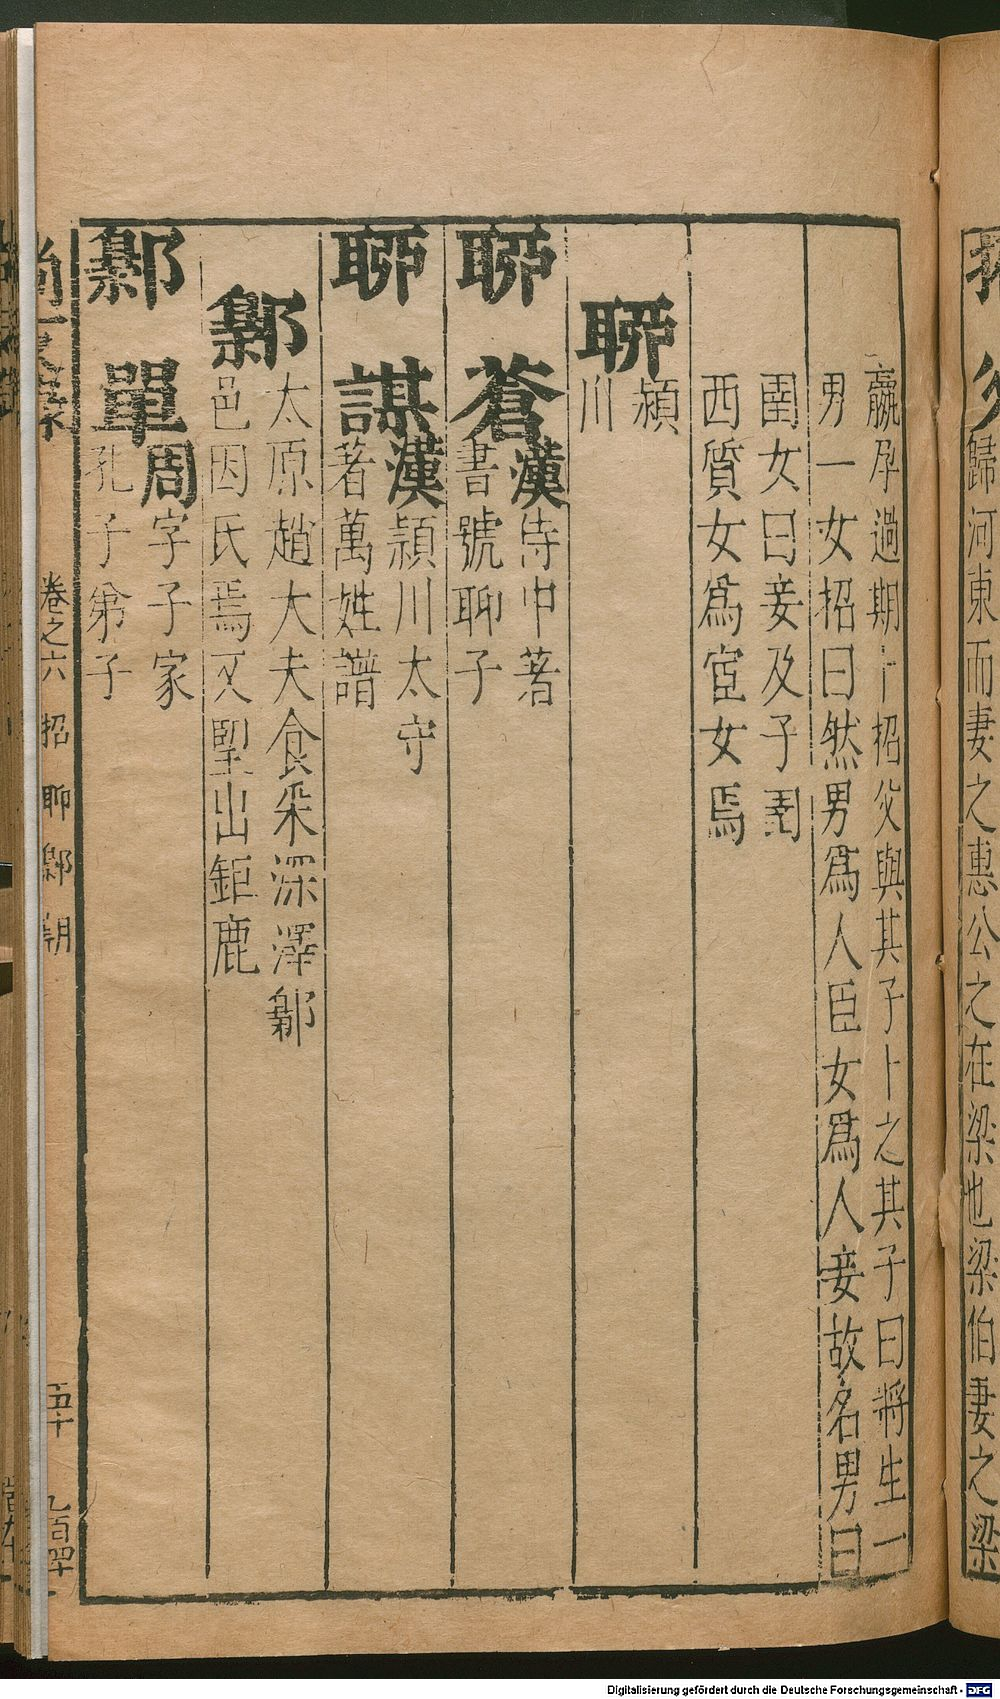 歸河東而妻之惠公之在梁也梁伯妻之梁
嬴孕過期卜招父與其子卜之其子曰將生一
男一女招曰然男爲人臣女爲人妾故名男曰
圉女曰妾及子圉
西質女爲宦女焉
聊
潁
川
聊蒼
漢侍中著
書號聊子
聊謀
漢潁川太守
著萬姓譜
鄡
太原趙大夫食采深澤鄡
邑因氏焉又望出鉅鹿
鄡單
周字子家
孔子弟子
卷之六 招 聊 鄡 朝 五十 九百四十
Digitalisierung gefördert durch die Deutsche Forschungsgemeinschaft - DFG